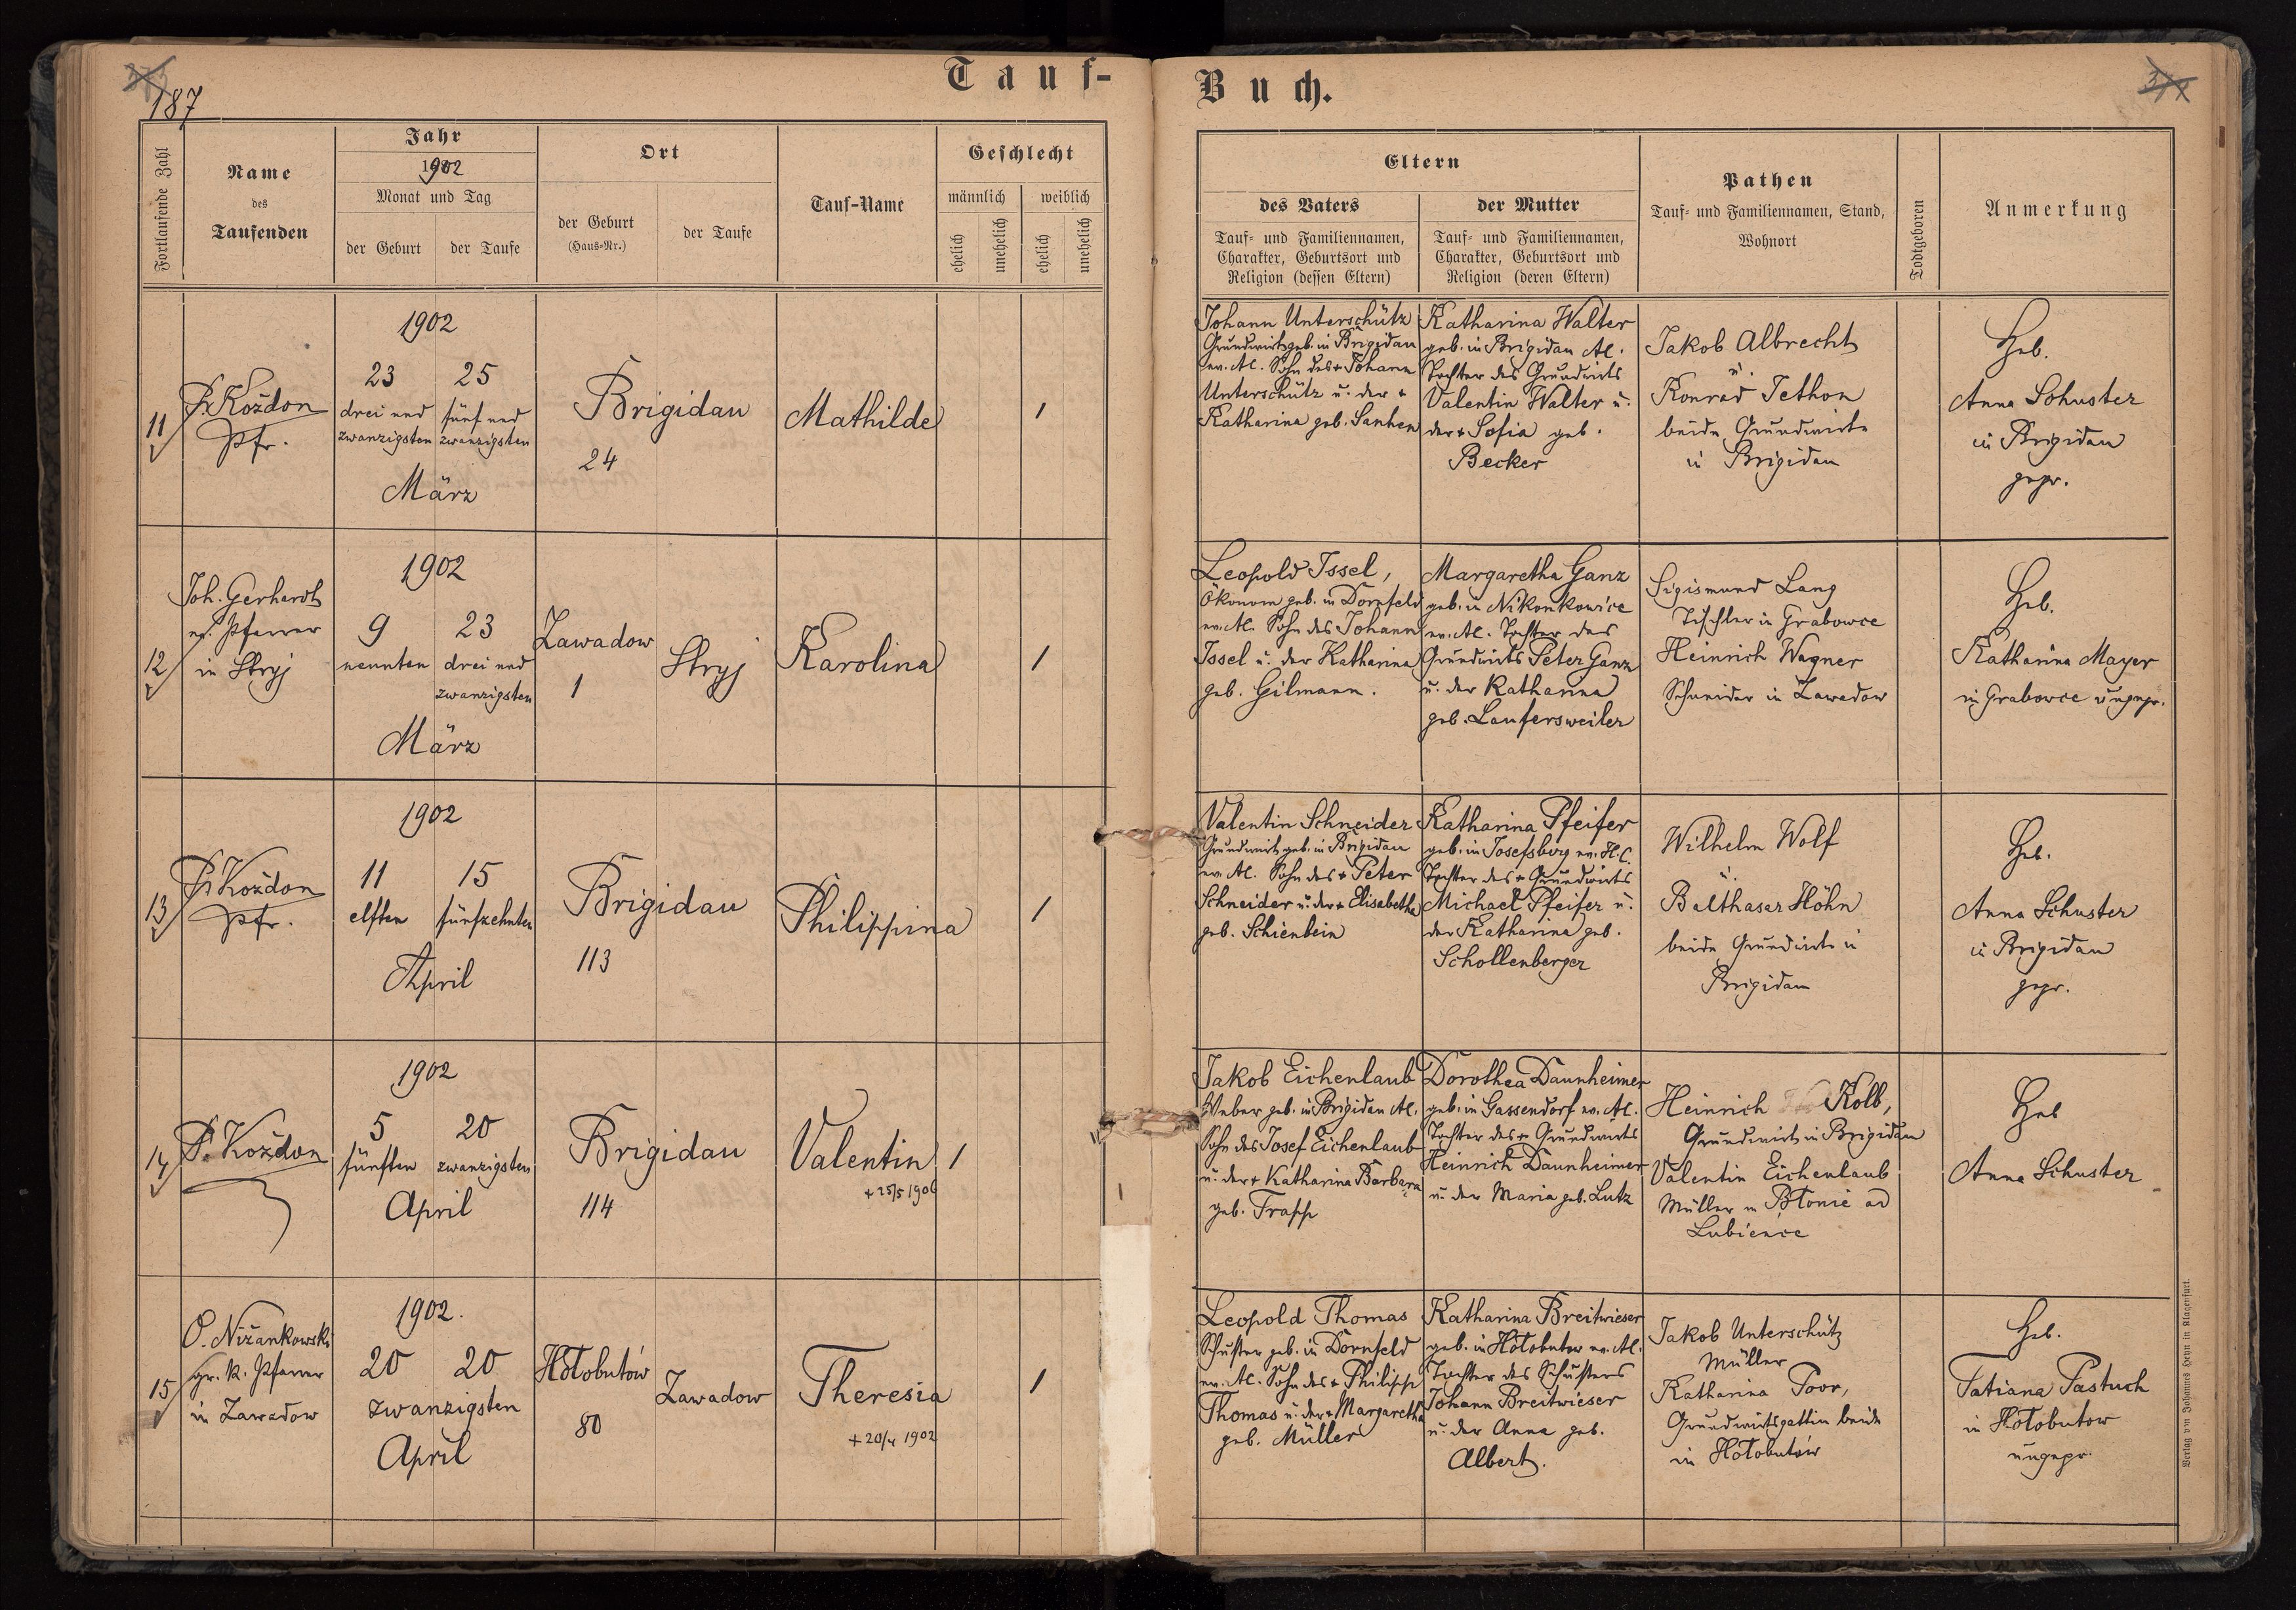 Tauf-
Buch.
187
Fortlaufende Zahl
Name
des
Taufenden
Jahr
1902
Monat und Tag
der Geburt
der Taufe
Ort
der Geburt
(Haus-Nr.)
der Taufe
Tauf-Name
Geschlecht
männlich
weiblich
ehelich
unehelich
ehelich
unehelich
Eltern
des Vaters
Tauf- und Familiennamen,
Charakter, Geburtsort und
Religion (dessen Eltern)
der Mutter
Tauf- und Familiennamen,
Charakter, Geburtsort und
Religion (deren Eltern)
Pathen
Tauf- und Familiennamen, Stand,
Wohnort
Todtgeboren
Anmerkung
11
P. Koždon
Pfr.
1902
23
25
drei und
zwanzigsten
fünf und
zwanzigsten
März
Brigidau
24
Mathilde
1
Johann Unterschütz
Grundwirt geb. in Brigidau
ev. AC. Sohn des + Johann
Unterschütz u. der +
Katharina geb. Sanhen
Katharina Walter
geb. in Brigidau AC.
Tochter des Grundwirts
Valentin Walter u.
der + Sofia geb.
Becker
Jakob Albrecht
u.
Konrad Jethon
beide Grundwirte
in Brigidau
Heb.
Anna Schuster
in Brigidau
gepr.
12
Joh. Gerhardt
ev. Pfarrer
in Stryj
1902
9
23
neunten
drei und
zwanzigsten
März
Zawadow
1
Stryj
Karolina
1
Leopold Issel,
Ökonom geb. in Dornfeld
ev. AC. Sohn des Johann
Issel u. der Katharina
geb. Gilmann.
Margaretha Ganz
geb. in Nikonkowice
ev. AC. Tochter des
Grundwirts Peter Ganz
u. der Katharina
geb. Laufersweiler
Sigismund Lang
Tischler in Grabowce
Heinrich Wagner
Schneider in Zawadow
Heb.
Katharina Mayer
in Grabowce ungepr.
13
P. Koždon
Pfr.
1902
11
15
elften
fünfzehnten
April
Brigidau
113
Philippina
1
Valentin Schneider
Grundwirt geb. in Brigidau
ev. AC. Sohn des + Peter
Schneider u. der + Elisabetha
geb. Schienbein
Katharina Pfeifer
geb. in Josefsberg ev. H.C.
Tochter des + Grundwirts
Michael Pfeifer u.
der Katharina geb.
Schollenberger
Wilhelm Wolf
u.
Balthasar Höhn
beide Grundwirte in
Brigidau
Heb.
Anna Schuster
in Brigidau
gepr.
14
P. Koždon
1902
5
20
fünften
zwanzigsten
April
Brigidau
114
Valentin
+ 25/5 1906
1
Jakob Eichenlaub
Weber geb. in Brigidau AC.
Sohn des Josef Eichenlaub
u. der + Katharina Barbara
geb. Trapp
Dorothea Daunheimer
geb. in Gassendorf ev. AC.
Tochter des + Grundwirts
Heinrich Daunheimer
u. der Maria geb. Lutz
Heinrich Kolb,
Grundwirt in Brigidau
Valentin Eichenlaub
Müller in Błonie ad
Lubience
Heb
Anna Schuster
15
O. Nižankowski
gr. k. Pfarrer
in Zawadow
1902.
20
20
zwanzigsten
April
Hołobutów
80
Zawadow
Theresia
+ 20/4 1902
1
Leopold Thomas
Schuster geb. in Dornfeld
ev. AC. Sohn des + Philipp
Thomas u. der + Margaretha
geb. Müller
Katharina Breitwieser
geb. in Hołobutow ev. AC.
Tochter des Schusters
Johann Breitwieser
u. der Anna geb.
Albert.
Jakob Unterschütz
Müller
Katharina Poor,
Grundwirtsgattin beide
in Hołobutów
Heb.
Tatiana Pastuch
in Hołobutow
ungepr.
Verlag von Johannes Heyn in Klagenfurt.